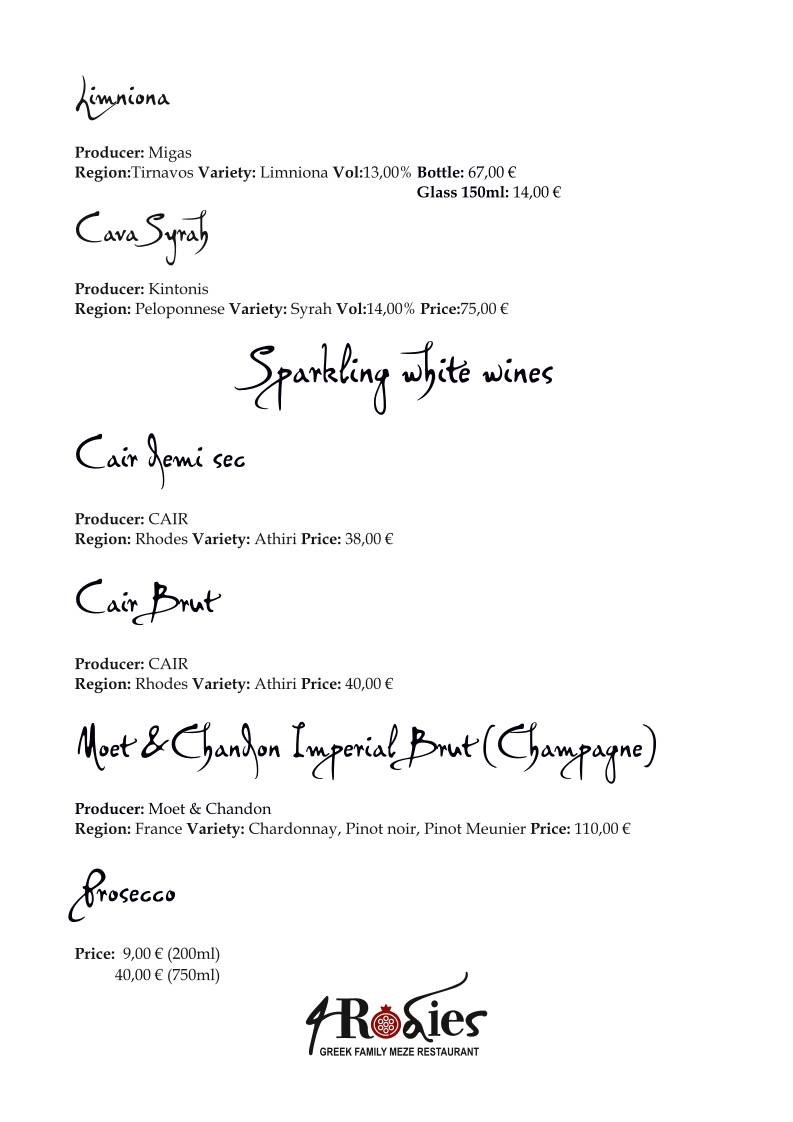 Limniona
Producer: Migas
Region:Tirnavos Variety: Limniona Vol:13,00% Bottle: 67,00 €
Glass 150ml: 14,00 €
Cava Syrah
Producer: Kintonis
Region: Peloponnese Variety: Syrah Vol:14,00% Price:75,00 €
Sparkling white wines
Cair demi sec
Producer: CAIR
Region: Rhodes Variety: Athiri Price: 38,00 €
Cair Brut
Producer: CAIR
Region: Rhodes Variety: Athiri Price: 40,00 €
Moet & Chandon Imperial Brut (Champagne)
Producer: Moet & Chandon
Region: France Variety: Chardonnay, Pinot noir, Pinot Meunier Price: 110,00 €
Prosecco
Price: 9,00 € (200ml)
40,00 € (750ml)
4Rodies
GREEK FAMILY MEZE RESTAURANT